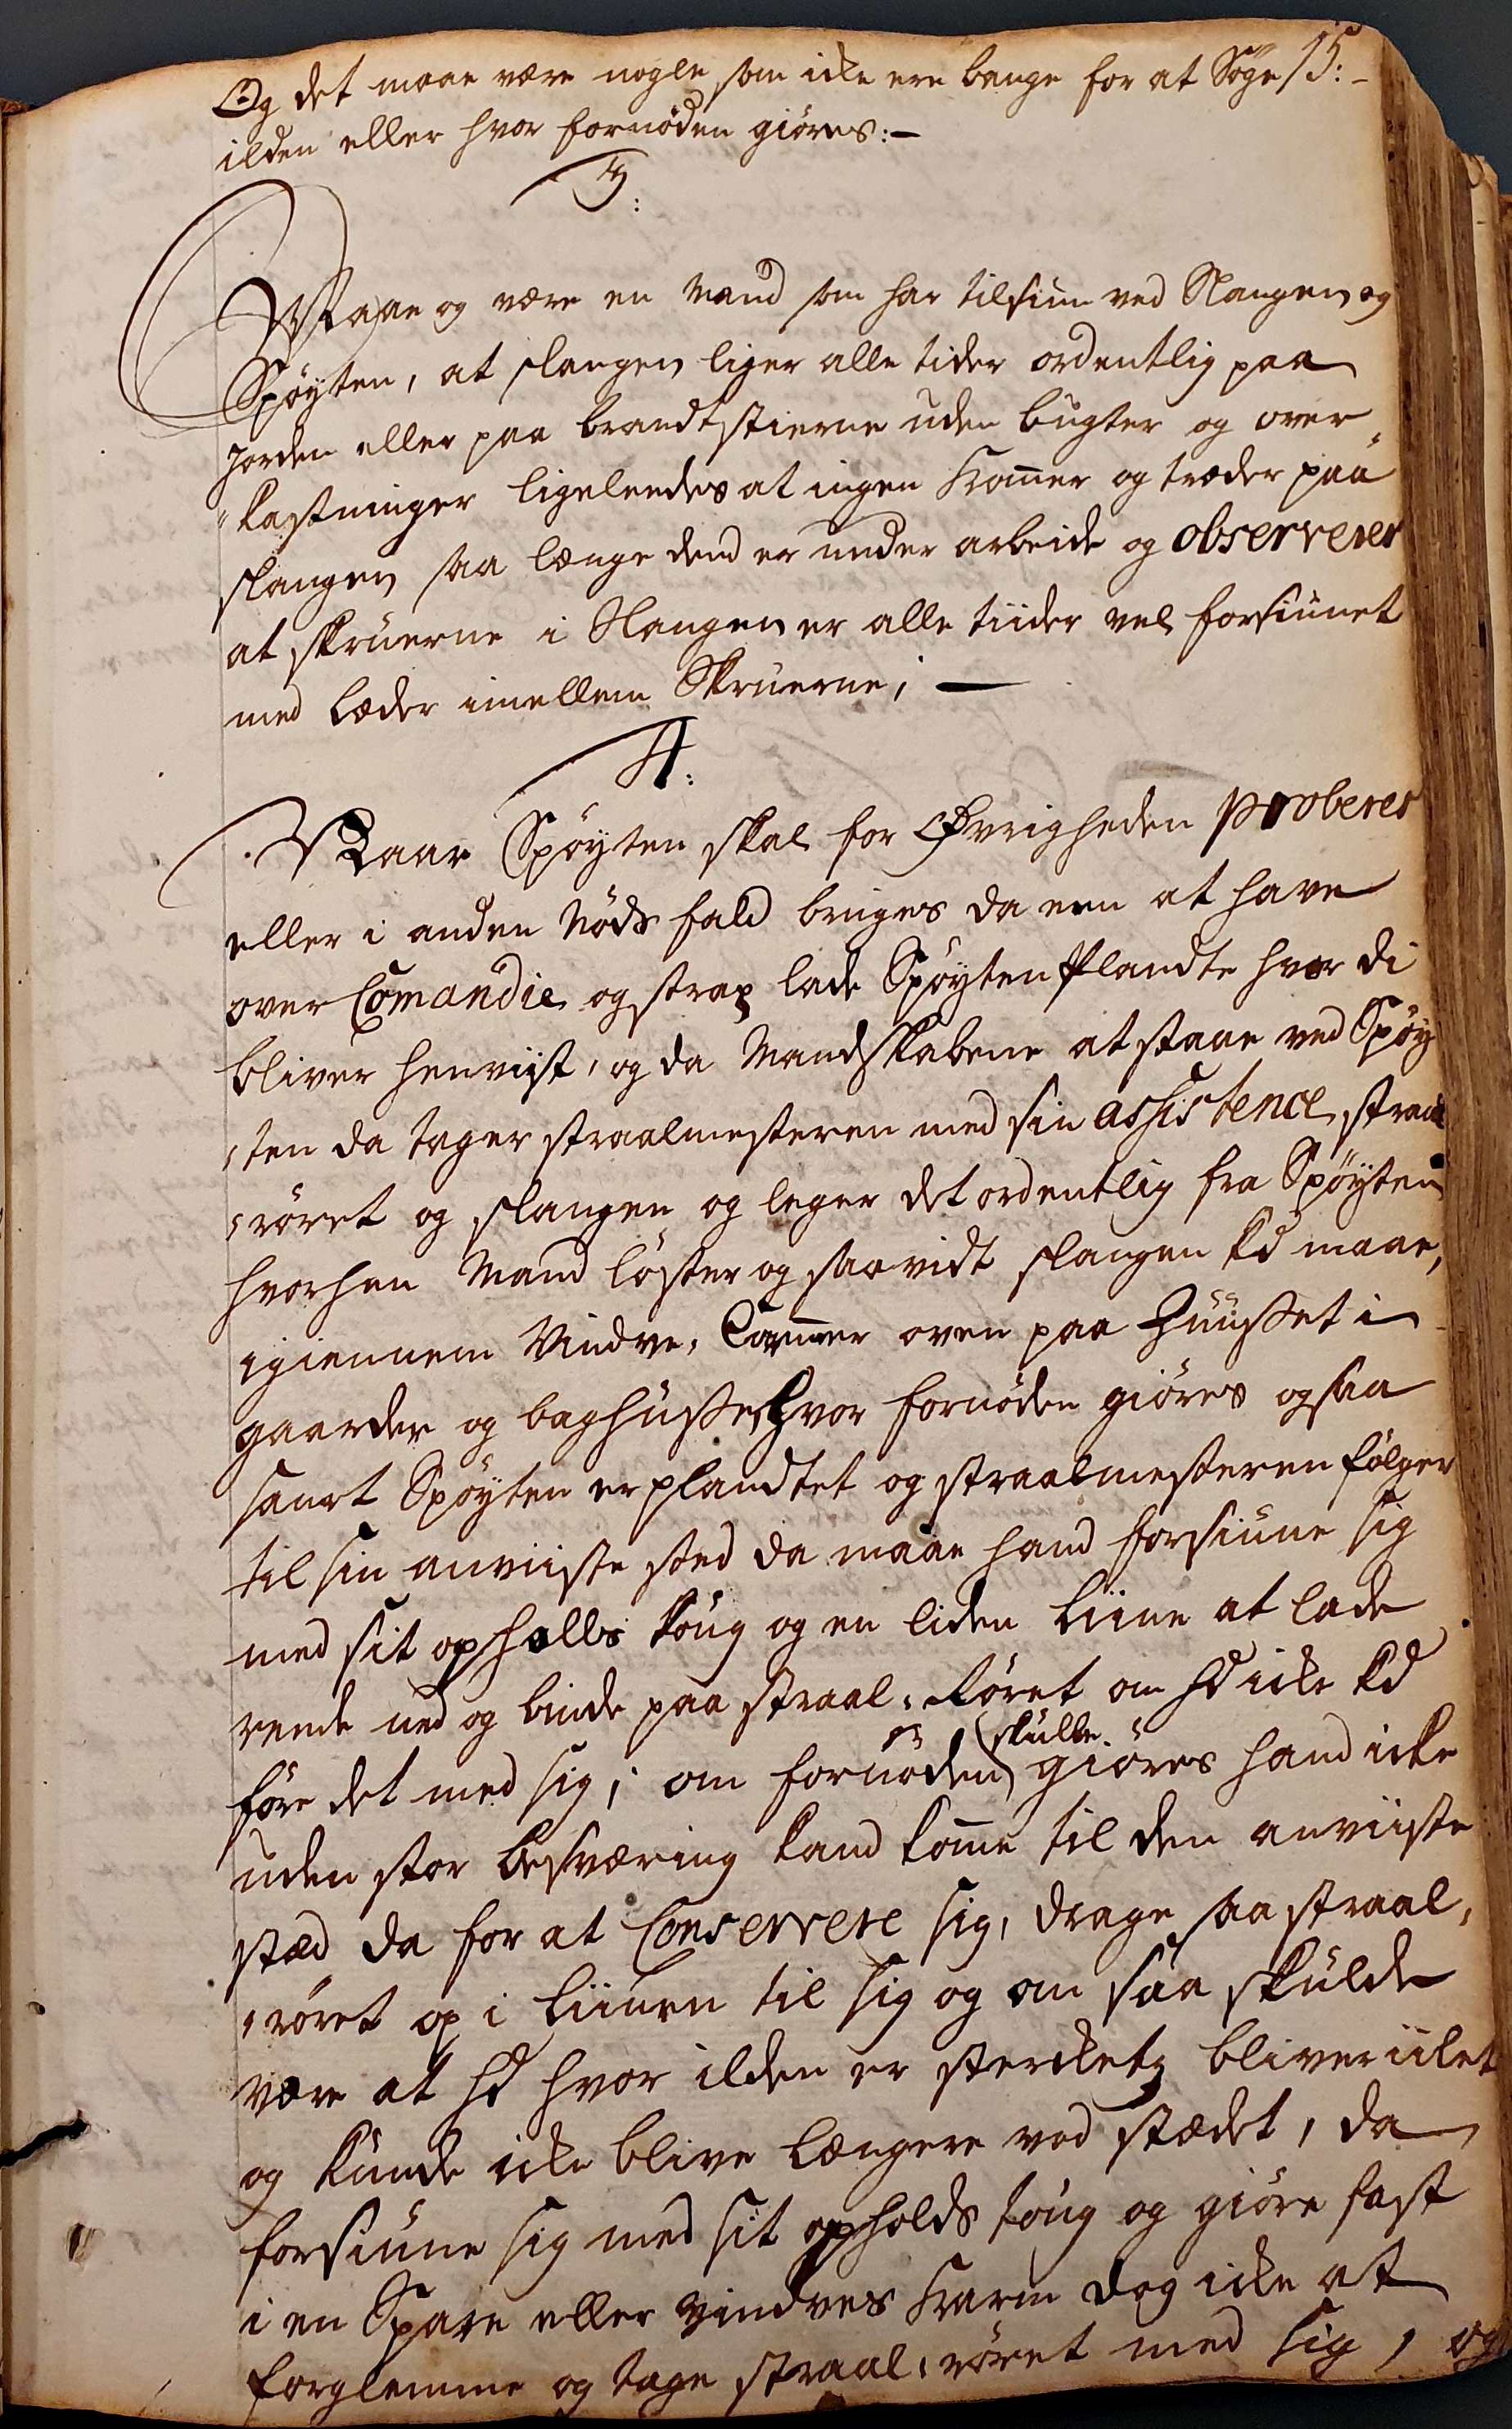 Og det maae være nogle som icke ere bange for at Søge 15:-
ilden eller hvor fornøden giøres:-
3:
Maae og være en Mand som har tilsiun ved Slangen og
Spøyten, at slangen liger alle tider ordentlig paa
Jorden eller paa brandtstierne uden bugter og over
"kastninger ligeleedes at ingen Kom̄er og træder paa
slangen saa længe dend er under arbeide og observerer
at skruerne i Slangen er alle tiider vel forsiunet
med Læder imellem Skruerne; -
4:
Naar Spøyten skal for Øvrigheden proberes
eller i anden Nøds fald bruges da een at have
over Com̄andie og strax lade Spøyten Plandte hvor di
bliver henviist, og da Mandskabene at staae ved Spøy
,ten da tager straalmesteren med sin assistence straal
,røret og slangen og leger det ordentlig fra Spøyten
hvorhen Mand løster og saavidt slangen kd maae,
igiennem Vindve, Cammer oven paa Huusset i
gaarder og baghusser hvor fornøden giøres og saa
snart Spøyten er plandtet og straalmesteren følger
til sin anviiste sted da maae hand forsiune sig
med sit opholds toug og en liden Liine at lade
rende ned og binde paa straal, Røret om hd icke kd
føre det med sig; om fornøden skulle giøres hand icke
uden stor besværing kand kom̄e til den anviiste
stæd da for at Conservere sig, drage saa straal,
,røret op i Liinen til sig og om saa skulde
være at hd hvor ilden er sterckest bliver iilet
og kunde icke blive længere ved stædet, da
forsiune sig med sit opholds toug og giøre fast
i en Spare eller vindves Karm dog icke at
forglemme og tage straal,røret med sig, og